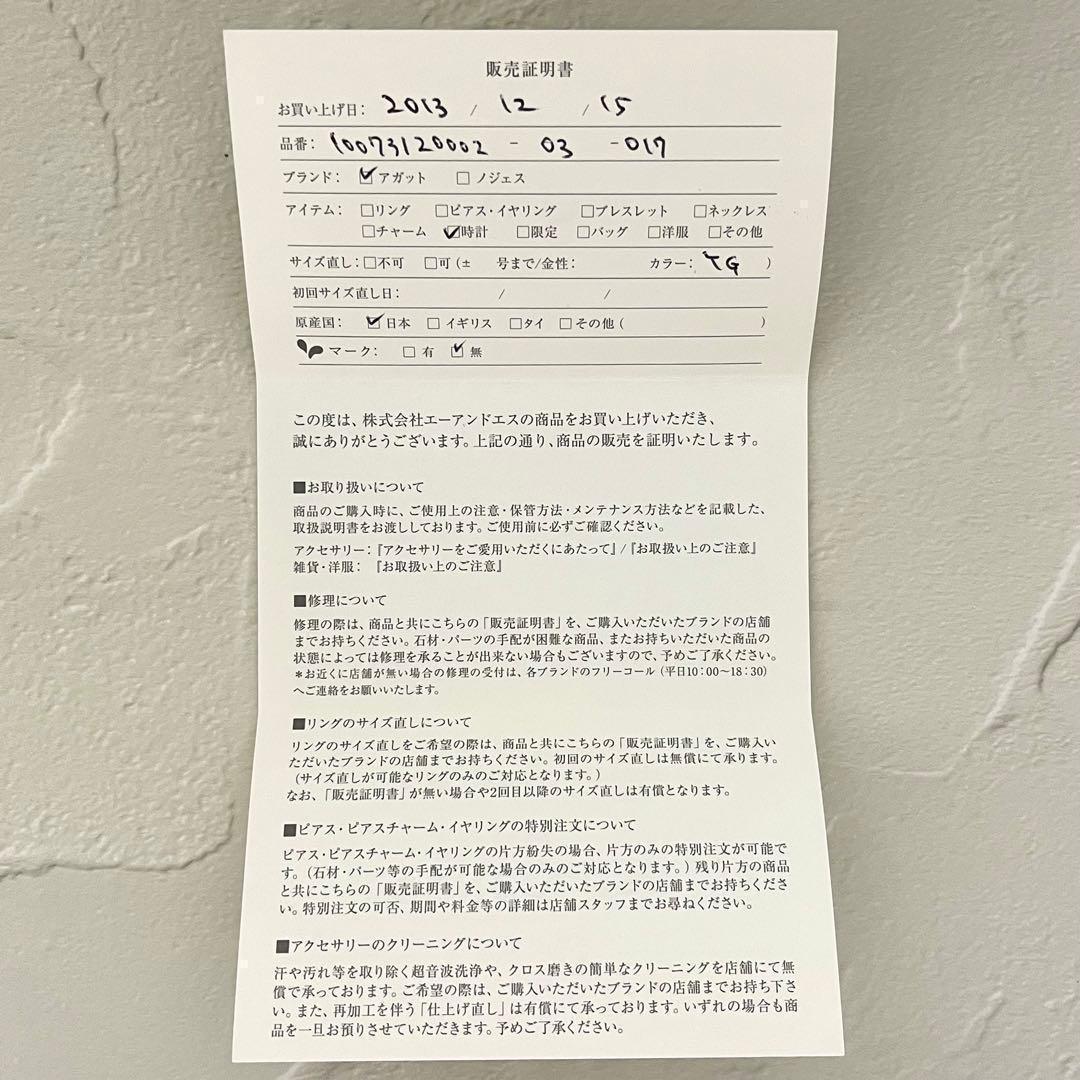 販売証明書
お買い上げ日: 2013 / 12 / 15
品番: 10073120002 - 03 - 017
ブランド: ☑アガット □ノジェス
アイテム: □リング □ピアス・イヤリング □ブレスレット □ネックレス
□チャーム ☑時計 □限定 □バッグ □洋服 □その他
サイズ直し: □不可 □可(± 号まで/金性: カラー: YG )
初回サイズ直し日: / /
原産国: ☑日本 □イギリス □タイ □その他( )
マーク: □有 ☑無
この度は、株式会社エーアンドエスの商品をお買い上げいただき、
誠にありがとうございます。上記の通り、商品の販売を証明いたします。
■お取り扱いについて
商品のご購入時に、ご使用上の注意・保管方法・メンテナンス方法などを記載した、
取扱説明書をお渡ししております。ご使用前に必ずご確認ください。
アクセサリー:『アクセサリーをご愛用いただくにあたって』/『お取扱い上のご注意』
雑貨・洋服: 『お取扱い上のご注意』
■修理について
修理の際は、商品と共にこちらの「販売証明書」を、ご購入いただいたブランドの店舗
までお持ちください。石材・パーツの手配が困難な商品、またお持ちいただいた商品の
状態によっては修理を承ることが出来ない場合もございますので、予めご了承ください。
*お近くに店舗が無い場合の修理の受付は、各ブランドのフリーコール(平日10:00〜18:30)
へご連絡をお願いいたします。
■リングのサイズ直しについて
リングのサイズ直しをご希望の際は、商品と共にこちらの「販売証明書」を、ご購入い
ただいたブランドの店舗までお持ちください。初回のサイズ直しは無償にて承ります。
(サイズ直しが可能なリングのみのご対応となります。)
なお、「販売証明書」が無い場合や2回目以降のサイズ直しは有償となります。
■ピアス・ピアスチャーム・イヤリングの特別注文について
ピアス・ピアスチャーム・イヤリングの片方紛失の場合、片方のみの特別注文が可能で
す。(石材・パーツ等の手配が可能な場合のみのご対応となります。)残り片方の商品
と共にこちらの「販売証明書」を、ご購入いただいたブランドの店舗までお持ちくださ
い。特別注文の可否、期間や料金等の詳細は店舗スタッフまでお尋ねください。
■アクセサリーのクリーニングについて
汗や汚れ等を取り除く超音波洗浄や、クロス磨きの簡単なクリーニングを店舗にて無
償で承っております。ご希望の際は、ご購入いただいたブランドの店舗までお持ち下さ
い。また、再加工を伴う「仕上げ直し」は有償にて承っております。いずれの場合も商
品を一旦お預りさせていただきます。予めご了承ください。